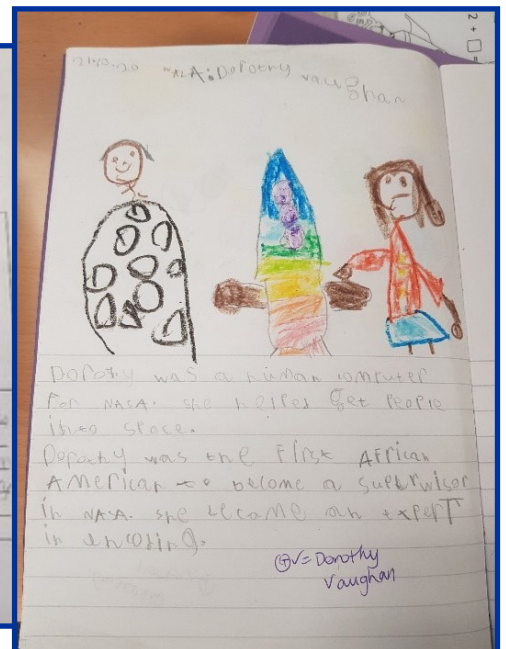 A: Dorothy vaughan
Dorothy was a human computer
for NASA. she helped get people
into space.
Dorothy was the first African
American to become a supervisor
in NASA. she became an expert
in
Dorothy
Vaughan
2 +